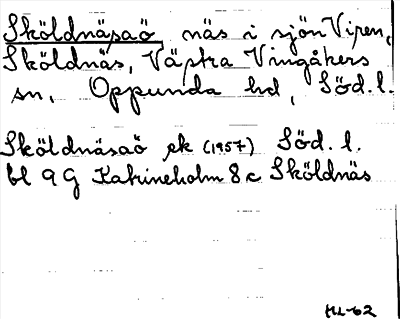 Sköldnäsaö näs i sjön Viren,
Sköldnäs, Västra Vingåkers
sn, Oppunda hd, Söd.l.
Sköldnäsaö ek (1957) Söd. l.
bl 9 G Katrineholm 8 c Sköldnäs
ML-62